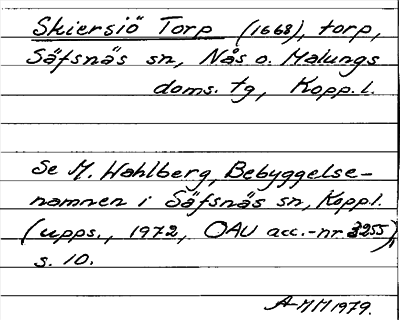 Skiersiö Torp (1668), torp,
Säfsnäs sn, Nås o. Malungs
doms. tg, Kopp. l.
Se M. Wahlberg, Bebyggelse-
namnen i Säfsnäs sn, Kopp l.
(upps., 1972, OAU acc.-nr 3255),
s. 10.
AMM 1979.